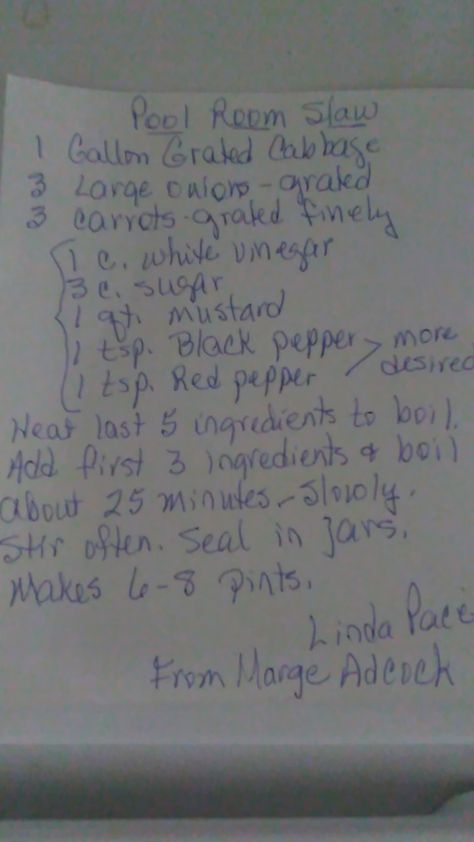 Pool Room Slaw
1 Gallon Grated Cabbage
3 Large onions - grated
3 carrots - grated finely
1 c. white vinegar
3 c. sugar
1 qt. mustard
1 tsp. Black pepper > more
1 tsp. Red pepper desired
Heat last 5 ingredients to boil.
Add first 3 ingredients & boil
about 25 minutes - slowly.
Stir often. Seal in jars.
Makes 6-8 pints.
Linda Pace
From Marge Adcock